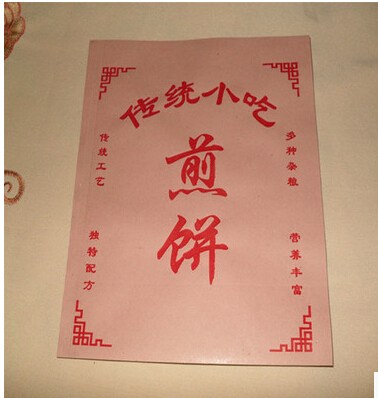 传统小吃
煎饼
传统工艺
多种杂粮
独特配方
营养丰富